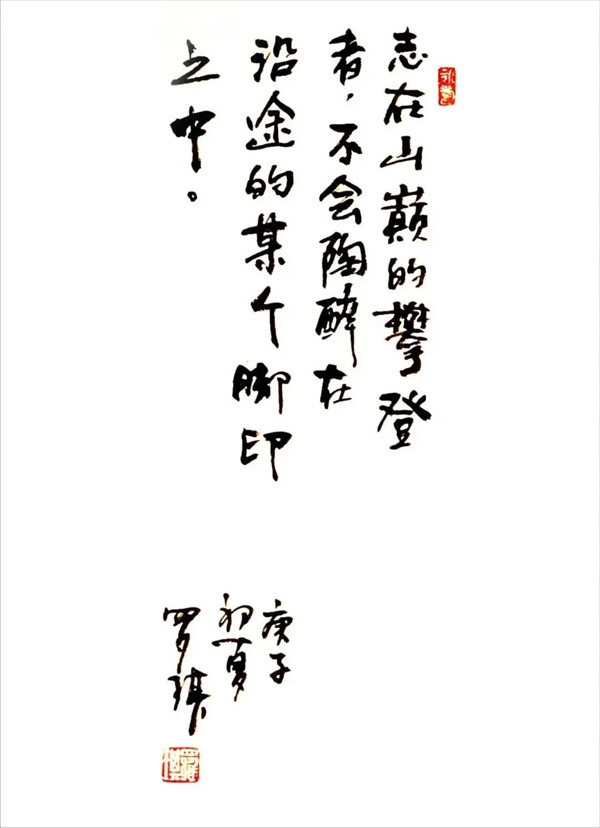 志在山巅的攀登
者，不会陶醉在
沿途的某个脚印
之中。
庚子
初夏
罗琪